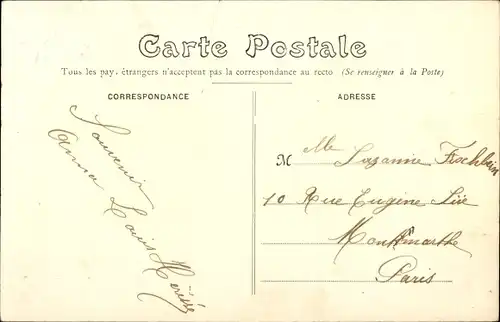 Carte Postale
Tous les pays étrangers n'acceptent pas la correspondance au recto (Se renseigner à la Poste)
CORRESPONDANCE
ADRESSE
Souvenir
Louis
M Mlle Suzanne
10 Rue Eugène Süe
Montmarthe
Paris